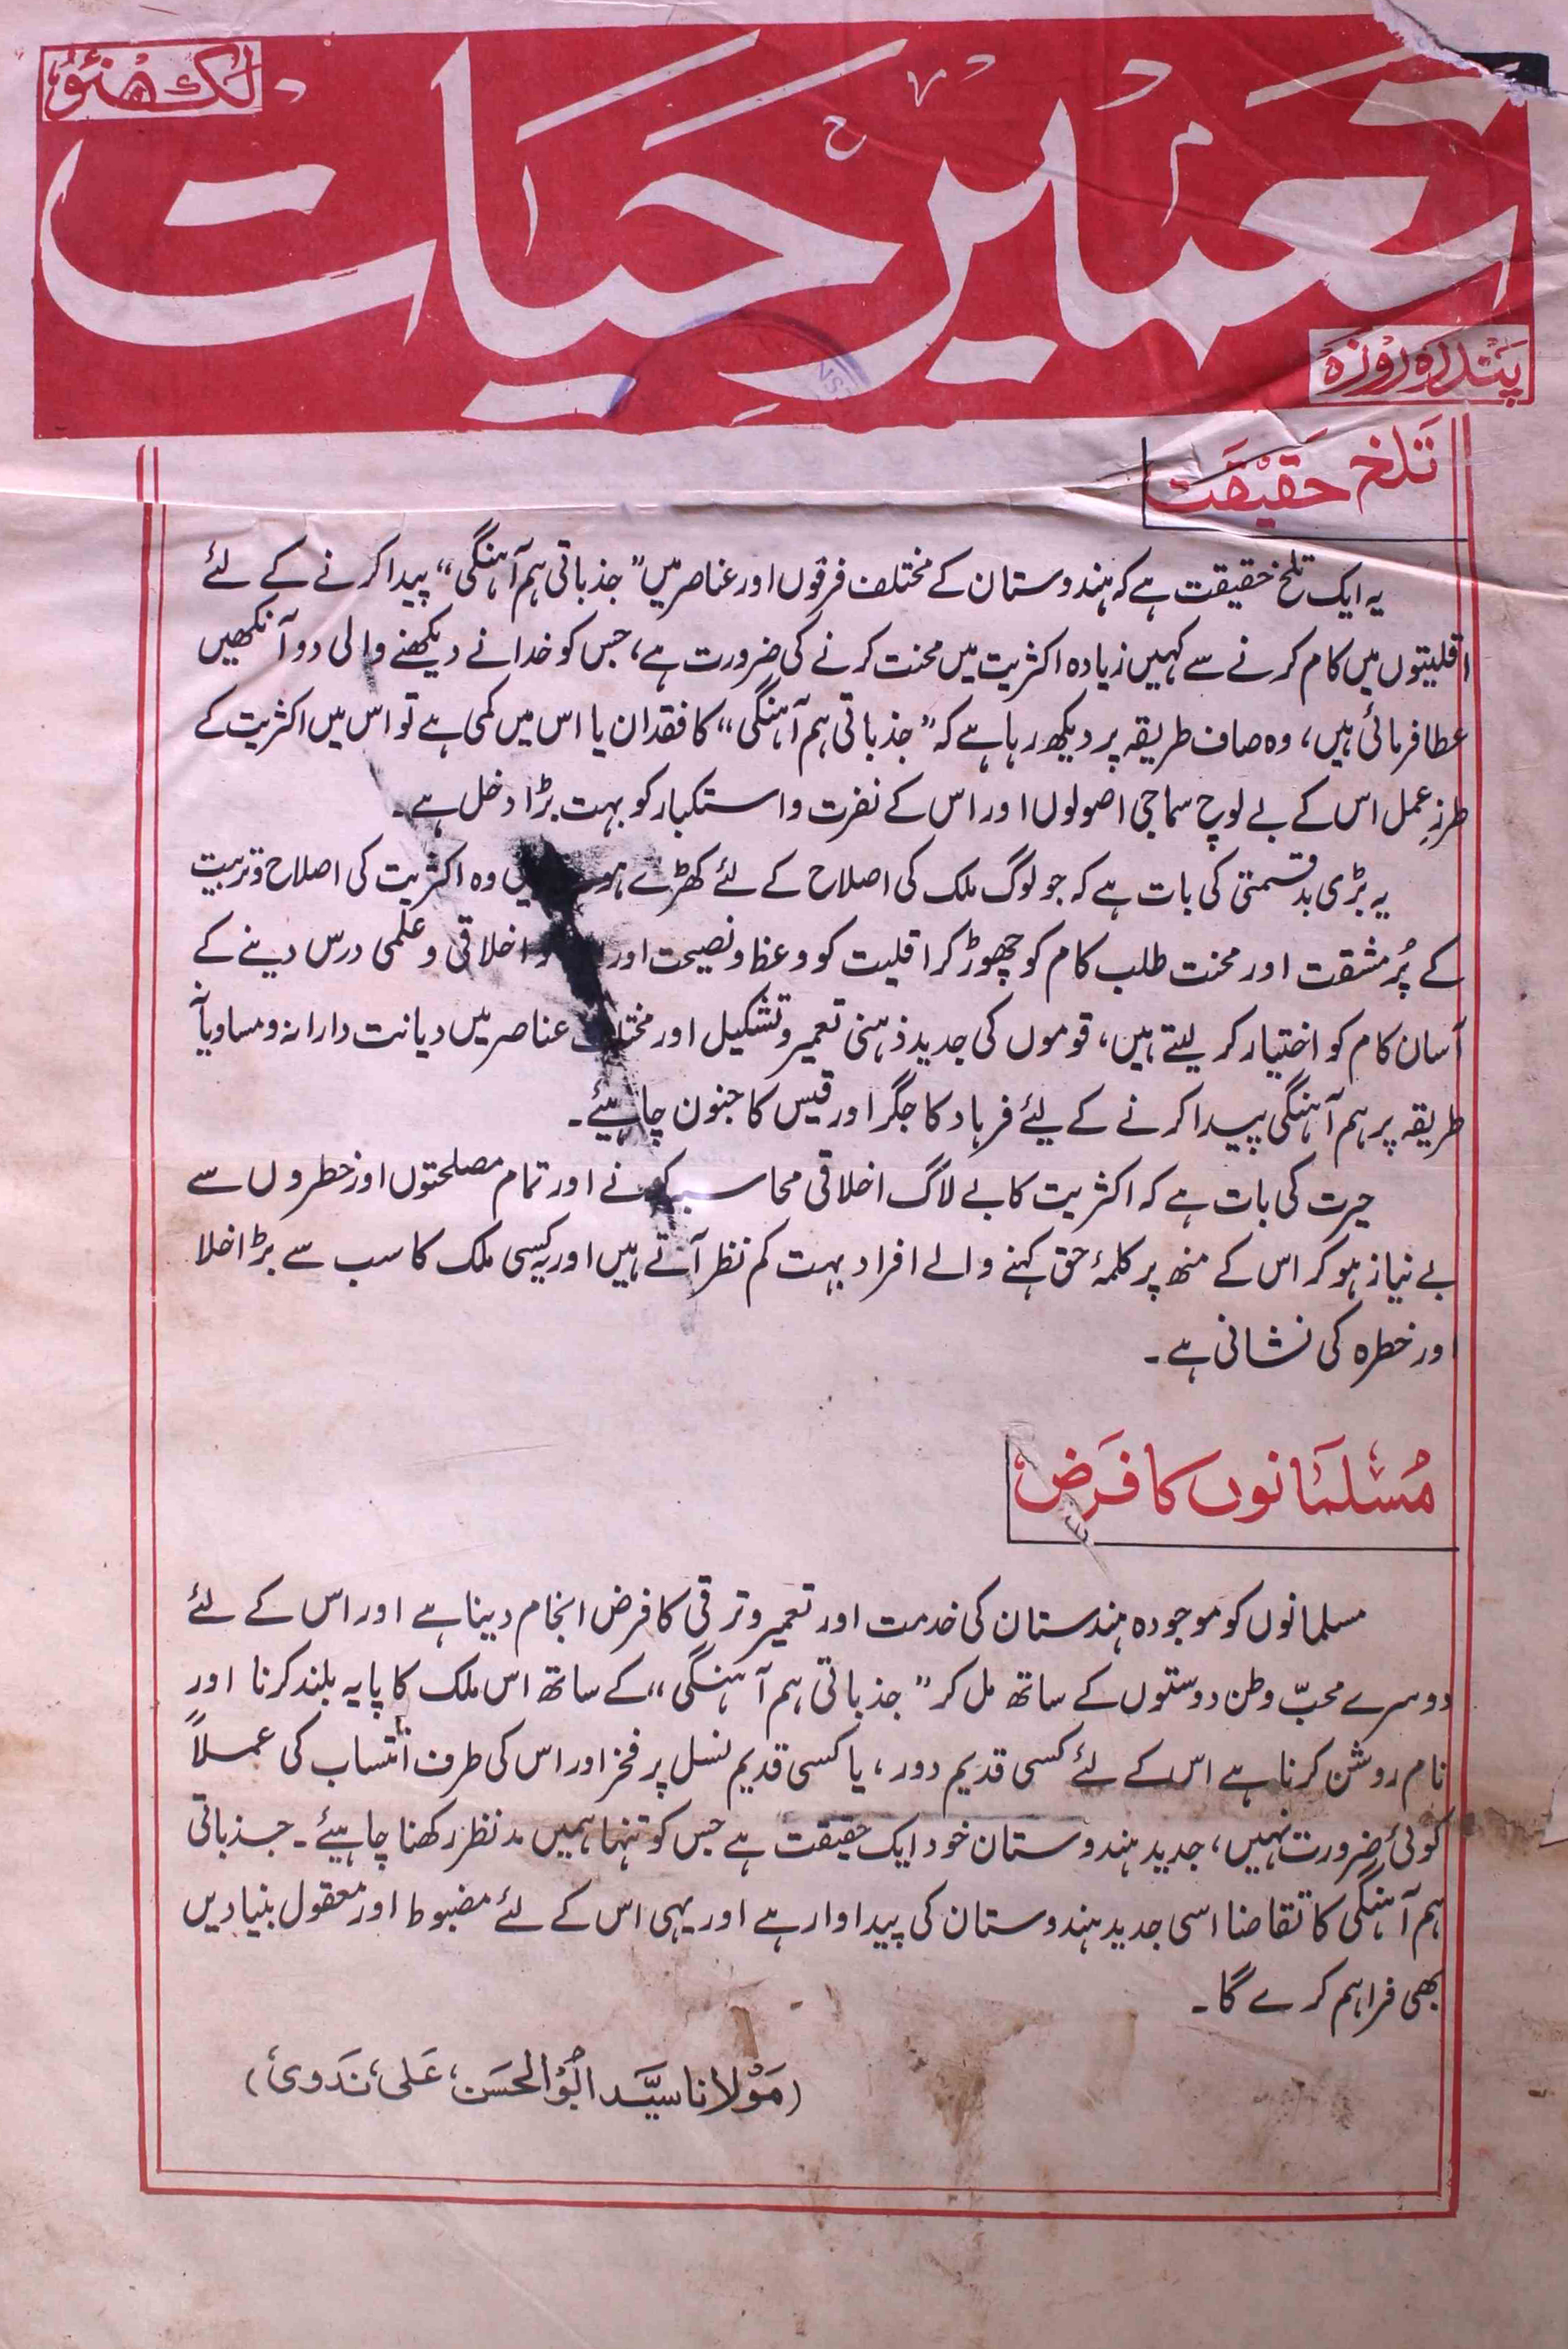 لکھنؤ
تعمیر حیات
پندرہ روزہ
تلخ حقیقت
یہ ایک تلخ حقیقت ہے کہ ہندوستان کے مختلف فرقوں اور عناصر میں ”جذباتی ہم آہنگی“ پیدا کرنے کے لئے
اقلیتوں میں کام کرنے سے کہیں زیادہ اکثریت میں محنت کرنے کی ضرورت ہے، جس کو خدا نے دیکھنے والی دو آنکھیں
عطا فرمائی ہیں، وہ صاف طریقہ پر دیکھ رہا ہے کہ ”جذباتی ہم آہنگی“ کا فقدان یا اس میں کمی ہے تو اس میں اکثریت کے
طرزِ عمل اس کے بے لوچ سماجی اصولوں اور اس کے نفرت و استکبار کو بہت بڑا دخل ہے۔
یہ بڑی بدقسمتی کی بات ہے کہ جو لوگ ملک کی اصلاح کے لئے کھڑے وہ اکثریت کی اصلاح و تربیت
کے پُر مشقت اور محنت طلب کام کو چھوڑ کر اقلیت کو وعظ و نصیحت اور اخلاقی و علمی درس دینے کے
آسان کام کو اختیار کر لیتے ہیں، قوموں کی جدید ذہنی تعمیر و تشکیل اور مختلف عناصر میں دیانت دارانہ و مساویانہ
طریقہ پر ہم آہنگی پیدا کرنے کے لیئے فرہاد کا جگر اور قیس کا جنون چاہیئے۔
حیرت کی بات ہے کہ اکثریت کا بے لاگ اخلاقی محاسبہ کرنے اور تمام مصلحتوں اور خطروں سے
بے نیاز ہو کر اس کے منھ پر کلمۂ حق کہنے والے افراد بہت کم نظر آتے ہیں اور یہ کسی ملک کا سب سے بڑا خلا
اور خطرہ کی نشانی ہے۔
مسلمانوں کا فرض
مسلمانوں کو موجودہ ہندستان کی خدمت اور تعمیر و ترقی کا فرض انجام دینا ہے اور اس کے لئے
دوسرے محبّ وطن دوستوں کے ساتھ مل کر ”جذباتی ہم آہنگی“ کے ساتھ اس ملک کا پایہ بلند کرنا اور
نام روشن کرنا ہے اس کے لئے کسی قدیم دور، یا کسی قدیم نسل پر فخر اور اس کی طرف انتساب کی عملاً
کوئی ضرورت نہیں، جدید ہندوستان خود ایک حقیقت ہے جس کو تنہا ہمیں مدنظر رکھنا چاہیئے۔ جذباتی
ہم آہنگی کا تقاضا اسی جدید ہندوستان کی پیداوار ہے اور یہی اس کے لئے مضبوط اور معقول بنیادیں
بھی فراہم کرے گا۔
(مولانا سیّد ابوالحسن علی ندوی)